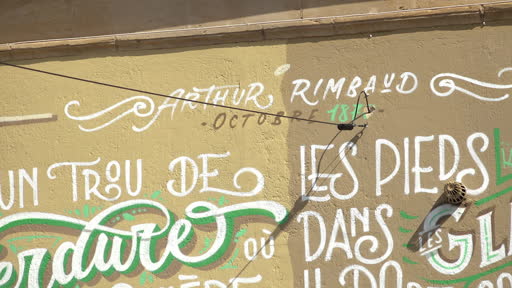 ARTHUR RIMBAUD
OCTOBRE
UN TROU DE
verdure OÙ
LES PIEDS
DANS
LES GLA
IL DO